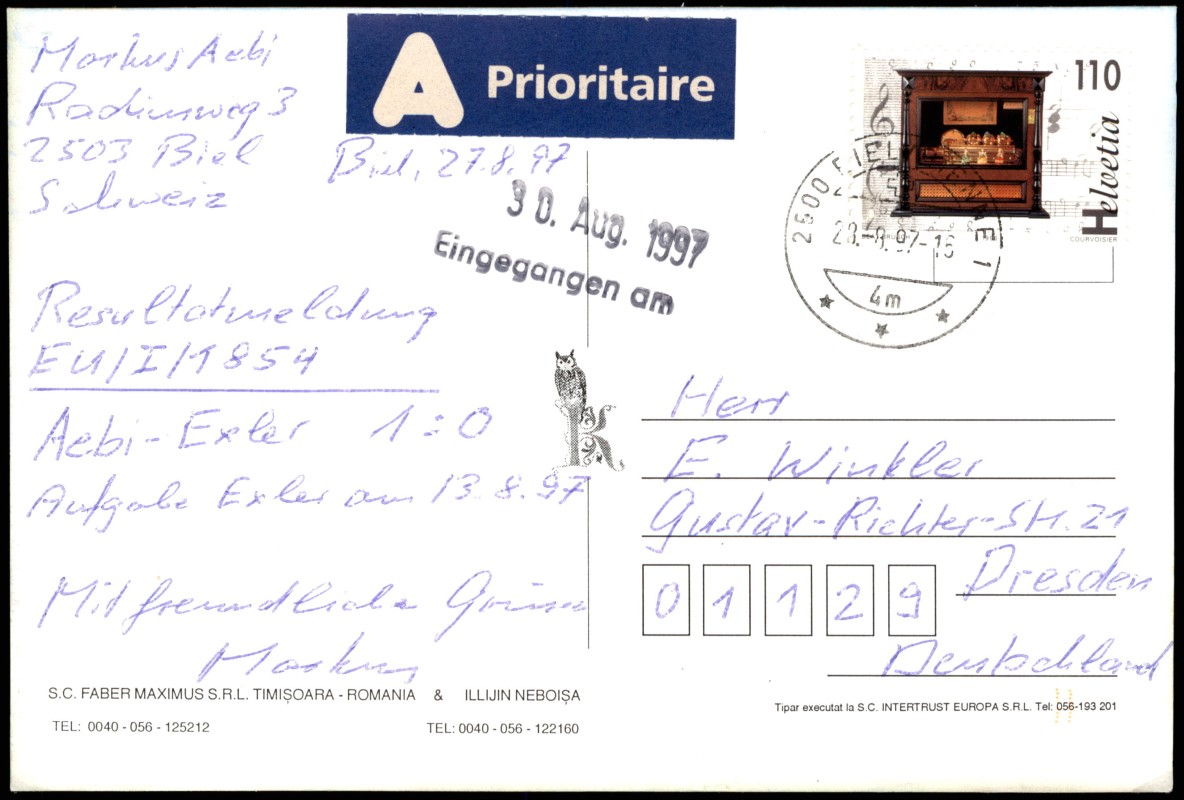 Markus Aebi
Radiusweg 3
2503 Biel
Schweiz
A Prioritaire
Biel, 27.8.97
30. Aug. 1997
Eingegangen am
110
Helvetia
COURVOISIER
2500 BIEL
28.-8.97-16
4m
Resultatmeldung
EU/I/1854
Aebi-Exler 1:0
Aufgabe Exler am 13.8.97
Mit freundliche Grüsse
Markus
K
Herr
E. Winkler
Gustav-Richter-Str. 21
01129 Dresden
Deutschland
S.C. FABER MAXIMUS S.R.L. TIMIȘOARA - ROMANIA & ILLIJIN NEBOIȘA
TEL: 0040 - 056 - 125212 TEL: 0040 - 056 - 122160
Tipar executat la S.C. INTERTRUST EUROPA S.R.L. Tel: 056-193 201